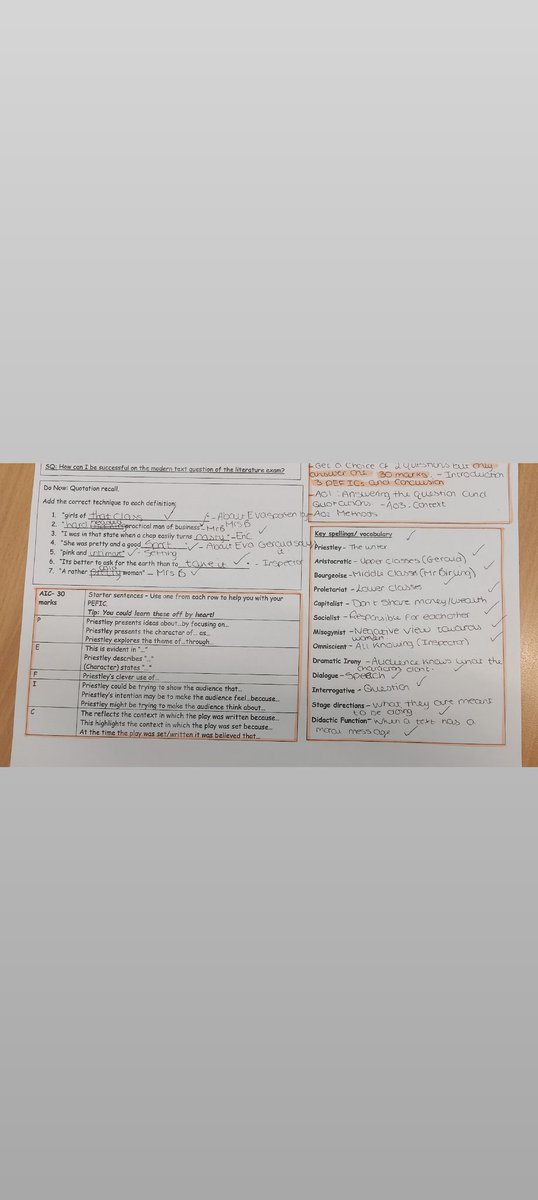 SQ: How can I be successful on the modern text question of the literature exam?
Do Now: Quotation recall.
Add the correct technique to each definition:
1. "girls of that class - About Eva spoken by Mrs B
2. "hard headed practical man of business" - Mr B
3. "I was in that state when a chap easily turns nasty" - Eric
4. "She was pretty and a good sport" - About Eva Gerald says it
5. "pink and intimate" - Setting
6. "Its better to ask for the earth than to take it". - Inspector
7. "A rather cold woman" - Mrs B
AIC- 30 marks
Starter sentences – Use one from each row to help you with your PEFIC.
Tip: You could learn these off by heart!
P
Priestley presents ideas about...by focusing on...
Priestley presents the character of.. as...
Priestley explores the theme of...through...
E
This is evident in "..."
Priestley describes "..."
(Character) states "..."
F
Priestley's clever use of...
I
Priestley could be trying to show the audience that...
Priestley's intention may be to make the audience feel...because...
Priestley might be trying to make the audience think about...
C
The reflects the context in which the play was written because...
This highlights the context in which the play was set because...
At the time the play was set/written it was believed that...
- Get a choice of 2 questions but only
answer one. 30 marks. - Introduction
3 PEFICs and Conclusion
- AO1: Answering the question and
Quotations. - AO3: Context
- AO2 Methods
Key spellings/ vocabulary
Priestley - The writer
Aristocratic - Upper classes (Gerald)
Bourgeoise - Middle Classes (Mr Birling)
Proletariat - Lower classes
Capitalist - Don't share money/wealth
Socialist - Responsible for eachother
Misogynist - Negative view towards
women
Omniscient - All Knowing (Inspector)
Dramatic Irony - Audience knows what the
characters don't.
Dialogue - Speech
Interrogative - Question
Stage directions - What they are meant
to be doing
Didactic Function - When a text has a
moral message